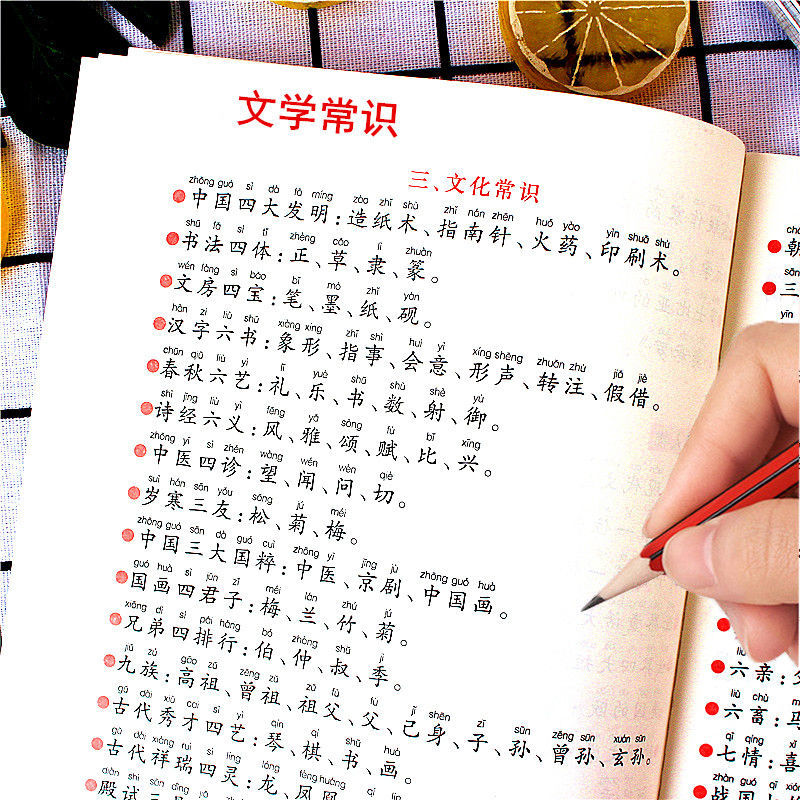 文学常识
三、文化常识
zhōng guó sì dà fā míng zào zhǐ shù zhǐ nán zhēn huǒ yào yìn shuā shù
中国四大发明:造纸术、指南针、火药、印刷术。
shū fǎ sì tǐ zhèng cǎo lì zhuàn
书法四体:正、草、隶、篆。
wén fáng sì bǎo bǐ mò zhǐ yàn
文房四宝:笔、墨、纸、砚。
hàn zì liù shū xiàng xíng zhǐ shì huì yì xíng shēng zhuǎn zhù jiǎ jiè
汉字六书:象形、指事、会意、形声、转注、假借。
chūn qiū liù yì lǐ yuè shū shù shè yù
春秋六艺:礼、乐、书、数、射、御。
shī jīng liù yì fēng yǎ sòng fù bǐ xīng
诗经六义:风、雅、颂、赋、比、兴。
zhōng yī sì zhěn wàng wén wèn qiè
中医四诊:望、闻、问、切。
suì hán sān yǒu sōng jú méi
岁寒三友:松、菊、梅。
zhōng guó sān dà guó cuì zhōng yī jīng jù zhōng guó huà
中国三大国粹:中医、京剧、中国画。
guó huà sì jūn zǐ méi lán zhú jú
国画四君子:梅、兰、竹、菊。
xiōng dì sì pái háng bó zhòng shū jì
兄弟四排行:伯、仲、叔、季。
jiǔ zú gāo zǔ zēng zǔ zǔ fù fù jǐ shēn zǐ sūn zēng sūn xuán sūn
九族:高祖、曾祖、祖父、父、己身、子、孙、曾孙、玄孙。
gǔ dài xiù cai sì yì qín qí shū huà
古代秀才四艺:琴、棋、书、画。
gǔ dài xiáng ruì sì líng lóng fèng huáng
古代祥瑞四灵:龙、凤
diàn shì sān
殿试三
朝
sān
三
liù
六亲:
liù chù
六畜:马
qī qíng xǐ
七情:喜
zhàn guó qī
战国七